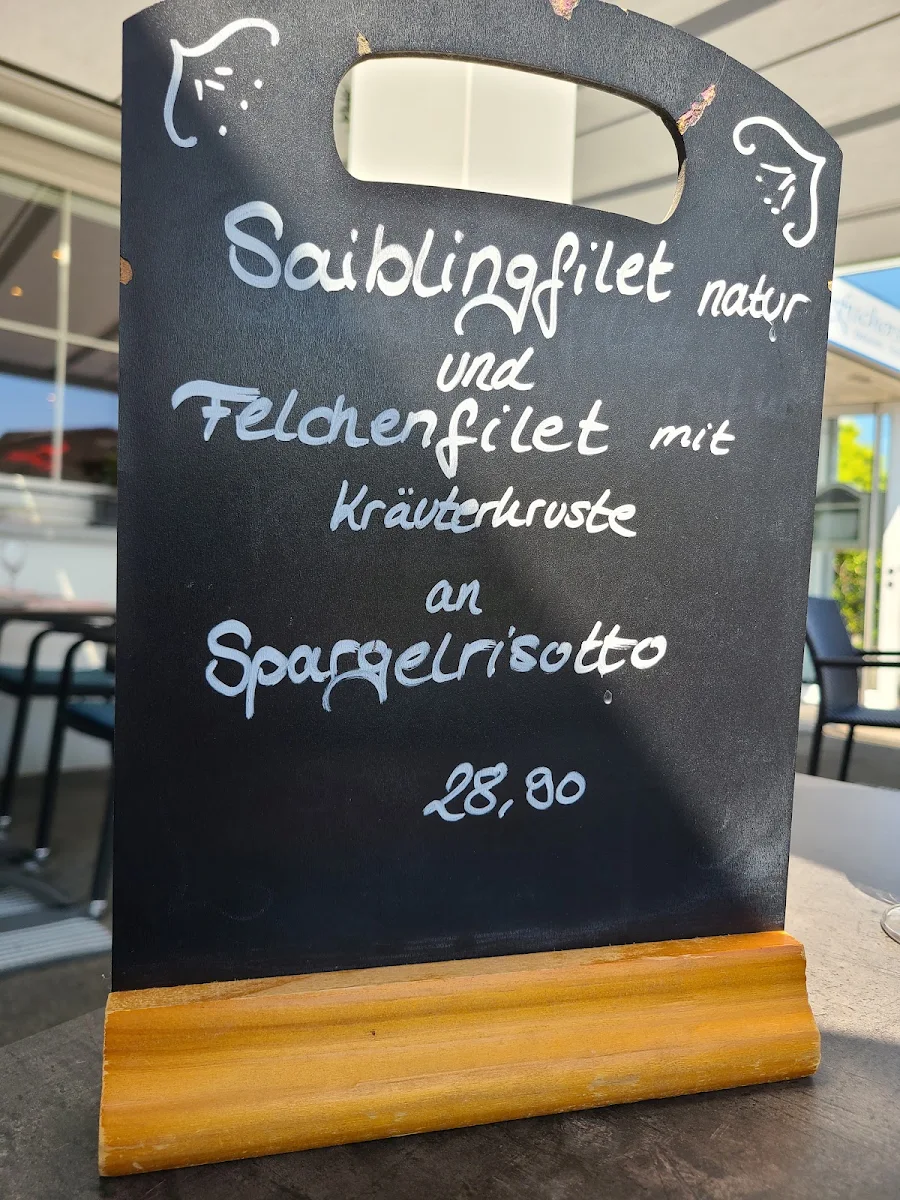 Saiblingfilet natur
und
Felchenfilet mit
Kräuterkruste
an
Spargelrisotto
28,90